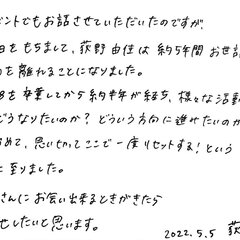 ベントでもお話させていただいたのですが、
日をもちまして、荻野由佳は約5年間お世話
を離れることになりました。
を卒業してから約半年が経ち、様々な活動
どうなりたいのか?どういう方向に進せたいのか
めて、思いきってここで一度リセットする!という
に至りました。
さんにお会い出来るときがきたら
せしたいと思います。
2022.5.5 荻